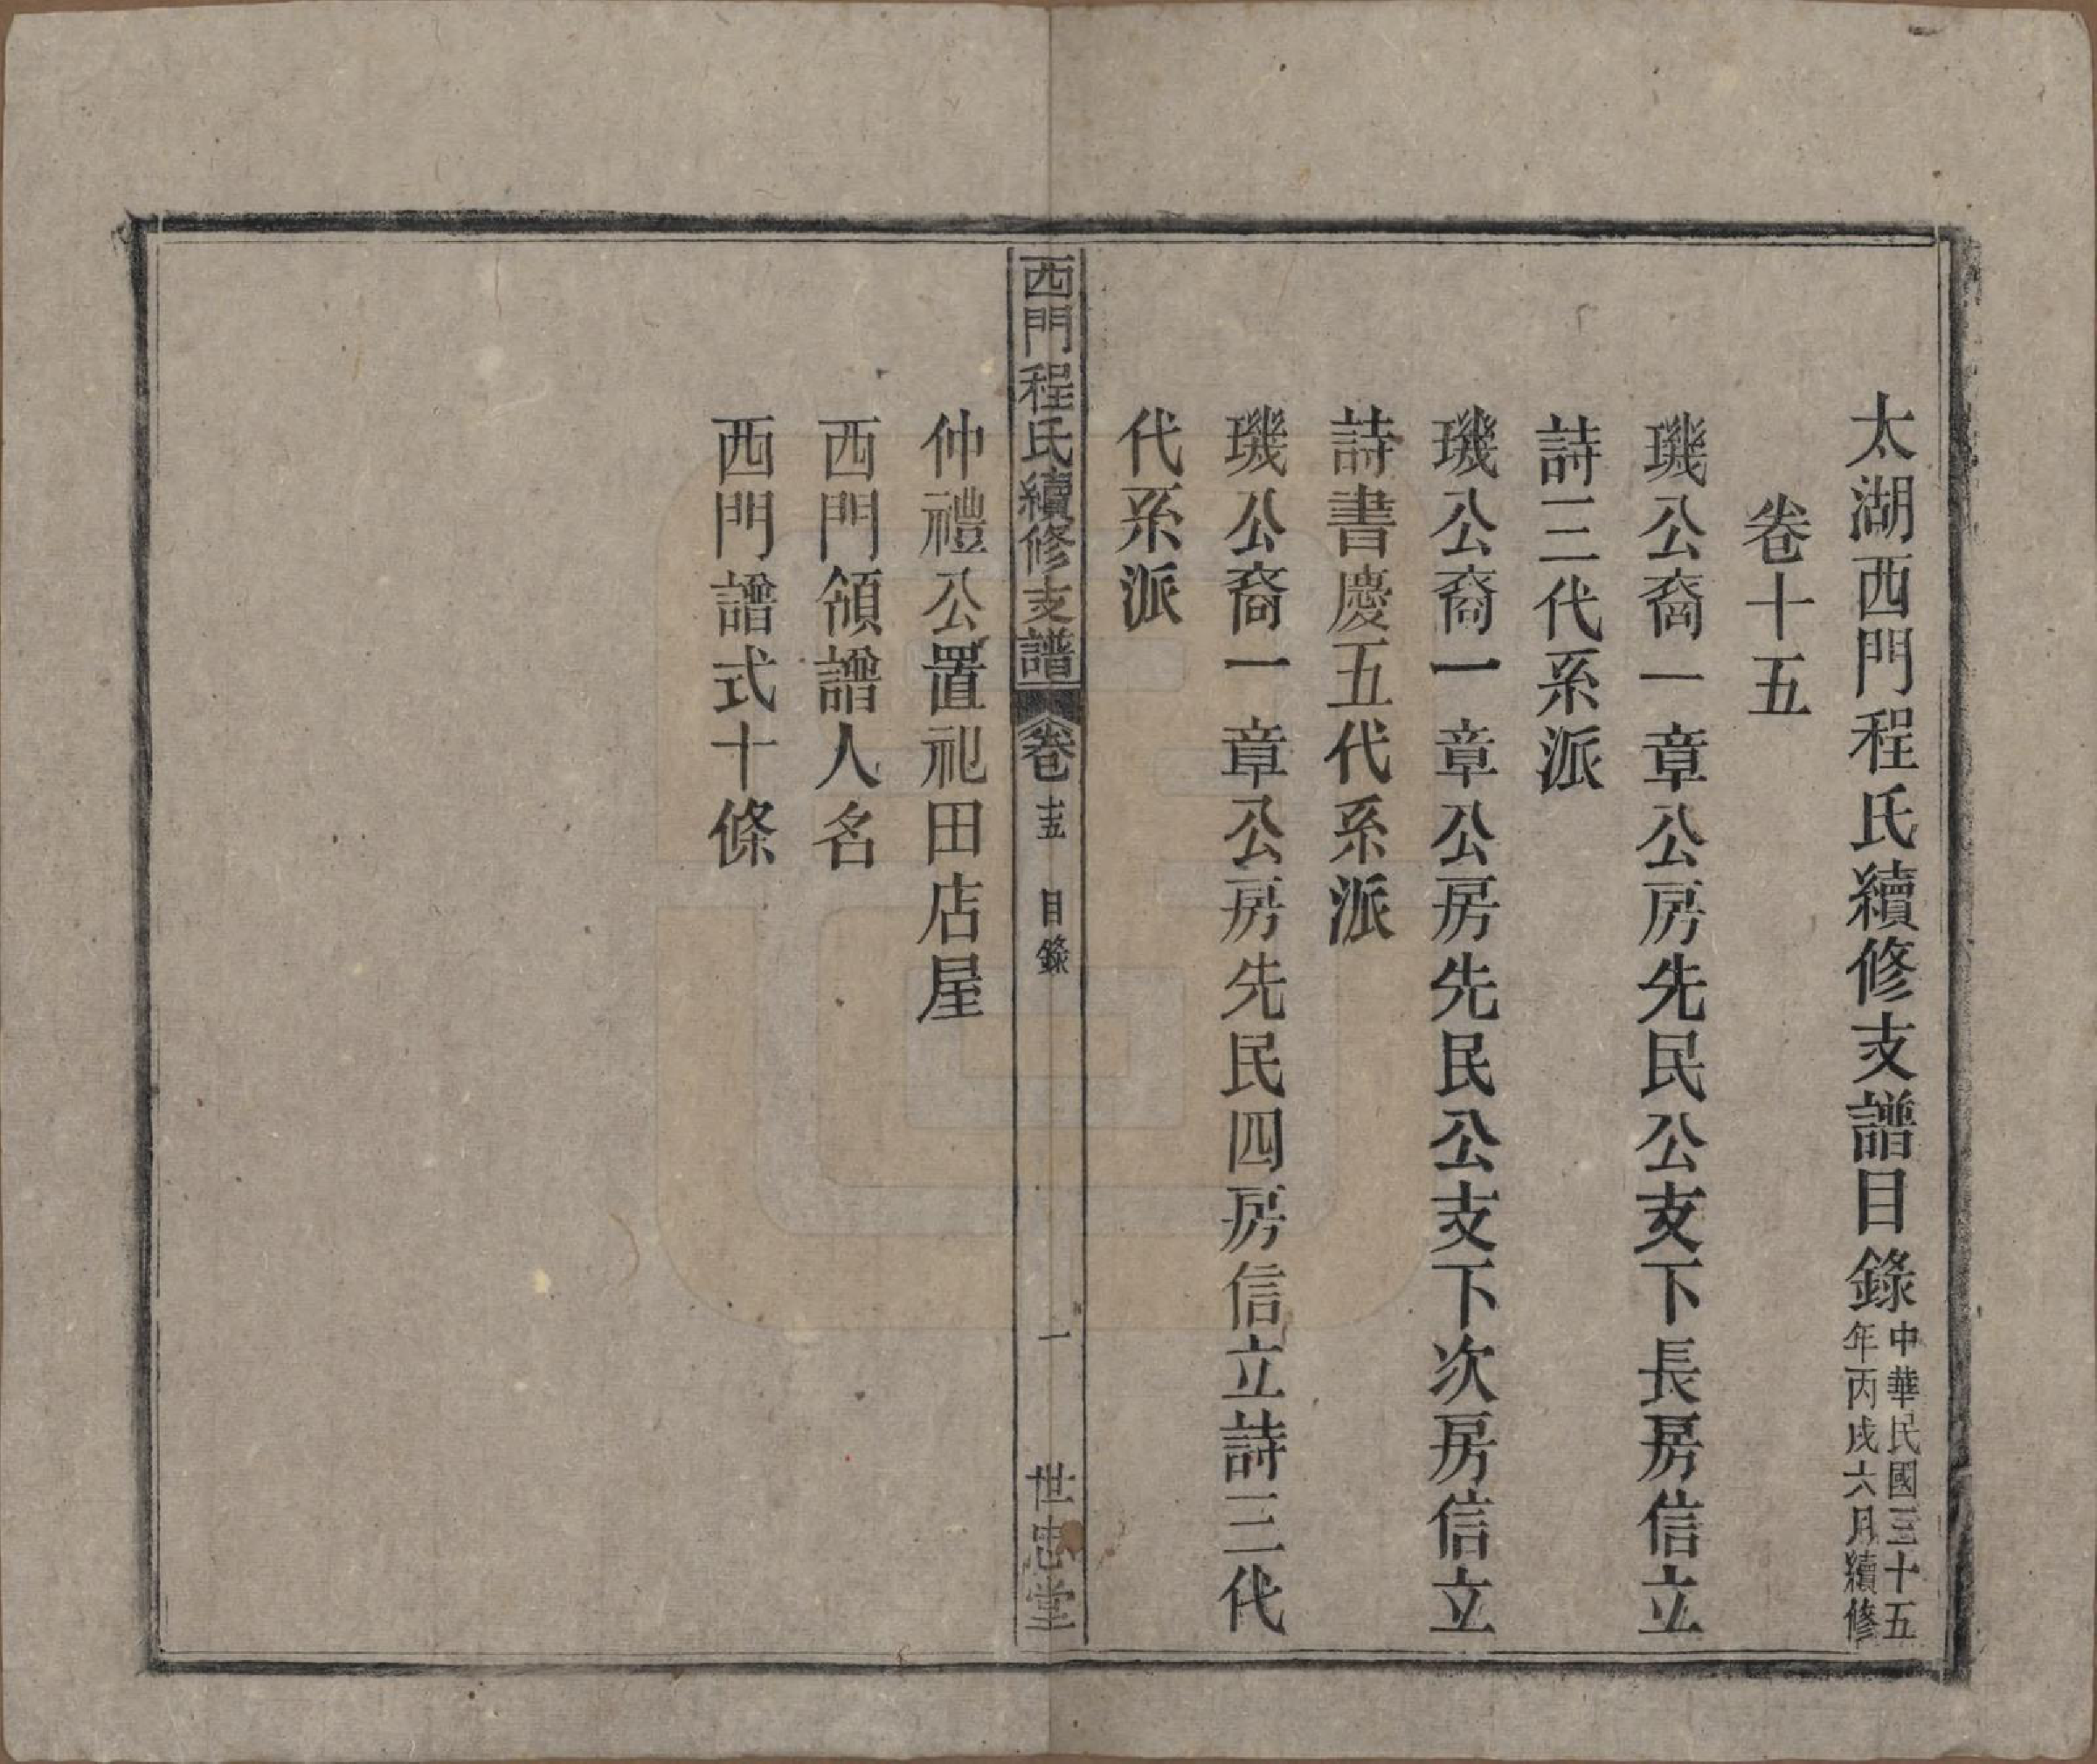 太湖西門程氏續修支譜目錄中華民國三十五年丙戌六月續修
卷十五
璣公裔一章公房先民公支下長房信立
詩三代系派
璣公裔一章公房先民公支下次房信立
詩書慶五代系派
璣公裔一章公房先民四房信立詩三代
代系派
西門程氏續修支譜 卷十五 目錄 一 世忠堂
仲禮公置祀田店屋
西門領譜人名
西門譜式十條